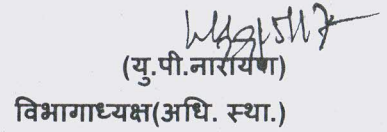 (यु.पी.नारायण)
विभागाध्यक्ष(अधि. स्था.)